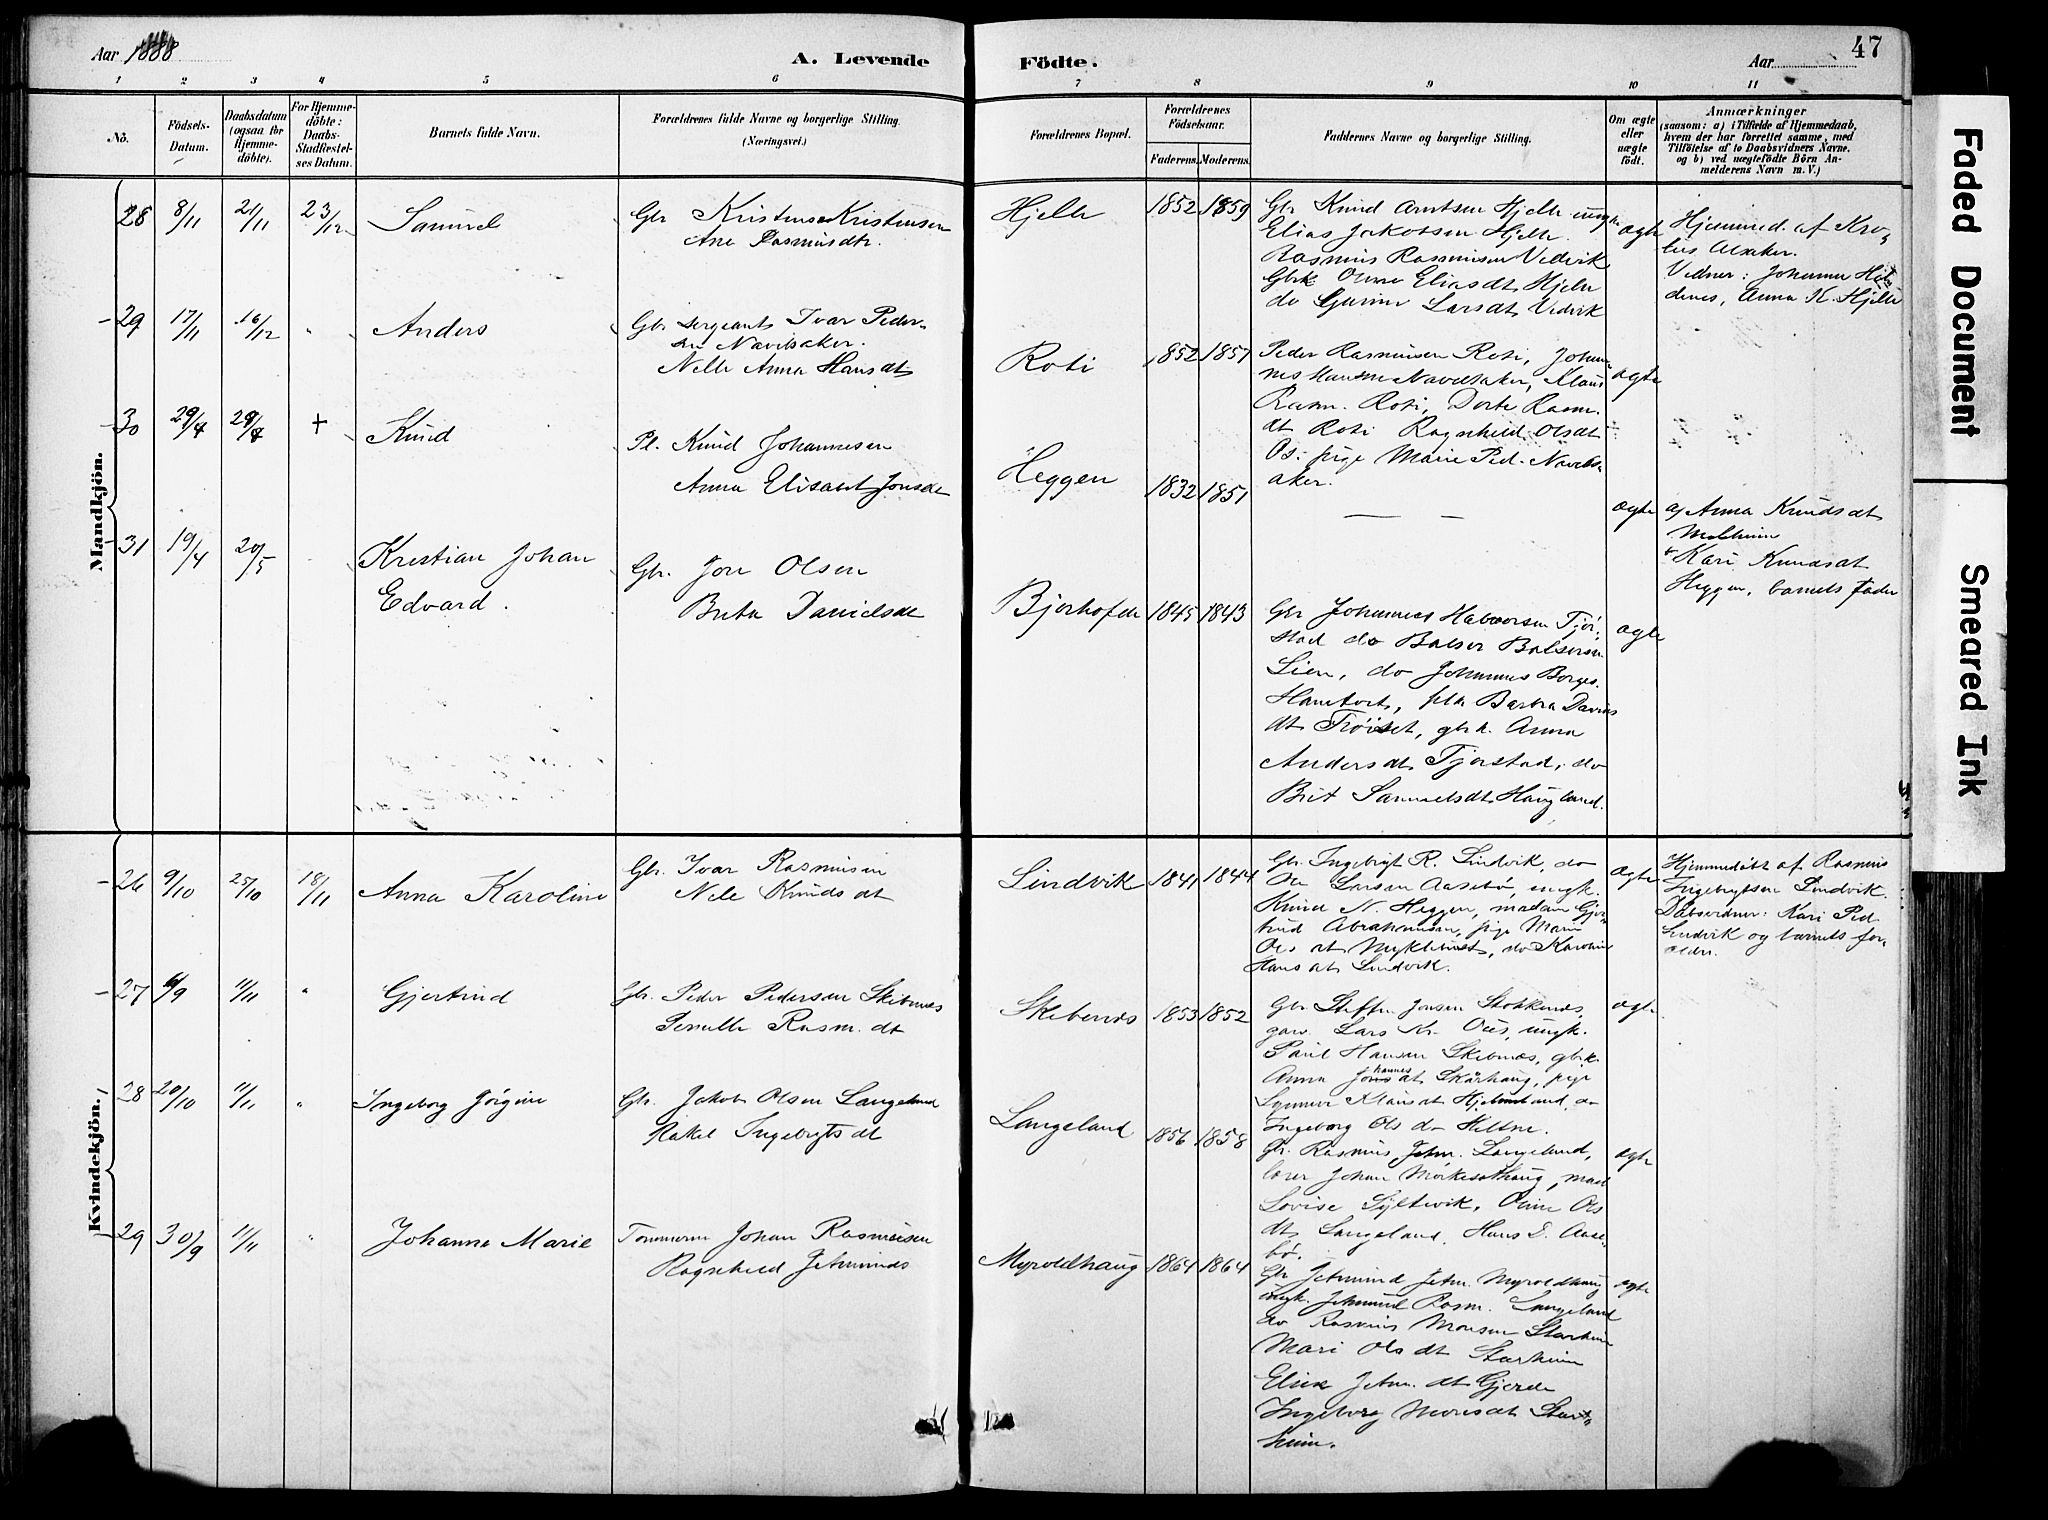 Aar 1888
A. Levende
Födte.
Aar
47
1 2 3 4 5 6 7 8 9 10 11
Nô.
Födsels-
Datum.
Daabsdatum
(ogsaa for
Hjemme-
döbte).
For Hjemme-
döbte:
Daabs-
Stadfæstel-
ses Datum.
Barnets fulde Navn.
Forældrenes fulde Navne og borgerlige Stilling.
(Næringsvei.)
Forældrenes Bopæl.
Forældrenes
Födselsaar.
Faderens. Moderens.
Faddernes Navne og borgerlige Stilling.
Om ægte
eller
uægte
födt.
Anmærkninger
(saasom: a) i Tilfælde af Hjemmedaab,
hvem der har forrettet samme, med
Tilföielse af to Daabsvidners Navne.
og b) ved uægtefödte Börn An-
melderens Navn m. V.)
Mandkjön.
28 8/11 21/11 23/12 Samuel
Gbr Kristen Kristensen
Ane Rasmusdtr.
Hjelle 1852 1859
Gbr Knud Arntsen Hjelle ungk
Elias Jakobsen Hjelle
Rasmus Rasmussen Vedvik
Gbrk Oline Eliasdt Hjelle
do Gurine Larsdt Vedvik
ægte
Hjemmed. af Kro-
Vidner: Johanne
denes, Anna K. Hjelle
29 17/11 16/12 " Anders
Gbr sergeant Ivar Peder-
sen Navelsaker.
Nelle Anna Hansdt
Roti 1852 1857
Peder Rasmussen Roti, Johan-
nes Hansen Navelsaker, Klaus
Rasm. Roti, Dorte Rasm.
dt Roti Ragnhild Olsdt
Os. pige Marie Ped. Navels-
aker.
ægte
30 29/4 29/4 + Knud
Pl. Knud Johannesen
Anna Elisabet Jonsdt
Heggen 1832 1851
— —
ægte
af Anna Knudsdt
Melheim
+ Kari Knudsdt
Heggen, barnets fader
31 19/4 20/5 Kristian Johan
Edvard.
Gbr. Jon Olsen
Brita Danielsdt
Bjørhofde 1845 1843
Gbr Johannes Halvorsen Tjør-
stad do Balser Balsersen
Lien, do Johannes Børges.
pik Barbra Davids
dt Trøiset, gbrk. Anna
Andersdt Tjørstad, do
Brit Samuelsdt Haugland.
ægte
Kvindekjön.
26 9/10 25/10 18/11 Anna Karoline
Gbr. Ivar Rasmussen
Nele Knudsdt
Lindvik 1841 1844
Gbr. Ingebrigt R. Lindvik, do
Larsen Aasebø, ungk.
Knud N. Heggen, madam Gjer-
trud Abrahamsen, pige Marie
Ols dt Myklebust, do Karoline
Hans dt Lindvik.
ægte
Hjemmedøbt af Rasmus
Ingebrigtsen Lindvik.
Dåbsvidner: Kari Ped
Lindvik og barnets for-
ældre.
27 6/9 11/11 " Gjertrud
Gbr. Peder Pedersen Skibenes
Pernille Rasm. dt
Skibenes 1853 1852
Gbr Steffen Jonsen Stokkenes,
gaw. Lars Kr. Ous, ungk.
Paul Hansen Skibenes, gbrk.
Anna Johannesdt Skårhaug, pige
Synneve Klausdt Hjelmeland, do
Ingeborg Ols dt Heltne.
ægte
28 20/10 11/11 " Ingeborg Jørgine
Gbr. Jakob Olsen Langeland
Rakel Ingebrigtsdt
Langeland 1856 1858
Gbr. Rasmus Jetm. Langeland,
lærer Johan Mørkesothaug, mad
Lovise Syltevik, Oline Ols
dt Langeland, Hans D. Aase-
bø.
ægte
29 30/9 11/11 " Johanne Marie
Tømmerm Johan Rasmussen
Ragnhild Jetmunds
Myroldhaug 1864 1864
Gbr Jetmund Jetm. Myroldhaug
ungk. Jetmund Rasm. Langeland
do Rasmus Monsen Starheim
Mari Ols dt Starheim
Elise Jetm. dt Gjerde
Ingeborg Monsdt Star-
heim.
ægte
Faded Document
Smeared Ink